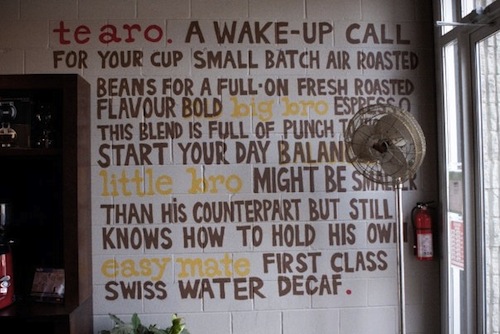 te aro. A WAKE-UP CALL
FOR YOUR CUP SMALL BATCH AIR ROASTED
BEANS FOR A FULL-ON FRESH ROASTED
FLAVOUR BOLD big bro ESPRESSO
THIS BLEND IS FULL OF PUNCH
START YOUR DAY
little bro MIGHT BE SMALLER
THAN HiS COUNTERPART BUT STILL
KNOWS HOW TO HOLD HIS OWN
easy mate FIRST CLASS
SWISS WATER DECAF.